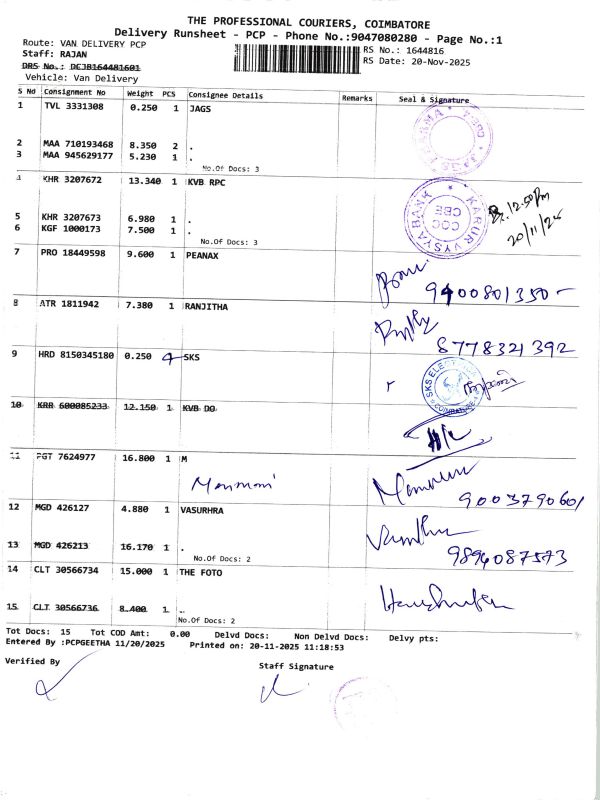 THE PROFESSIONAL COURIERS, COIMBATORE
Delivery Runsheet - PCP - Phone No.:9047080280 - Page No.:1
Route: VAN DELIVERY PCP
RS No.: 1644816
Staff: RAJAN
RS Date: 20-Nov-2025
DRS No.: DCJB164481601
Vehicle: Van Delivery
S No Consignment No Weight PCS Consignee Details Remarks Seal & Signature
1 TVL 3331308 0.250 1 JAGS
2 MAA 710193468 8.350 2 .
3 MAA 945629177 5.230 1 .
No.Of Docs: 3
4 KHR 3207672 13.340 1 KVB RPC
KARUR VYSYA BANK
COC
CBE
12.50 Pm
20/11/25
5 KHR 3207673 6.980 1 .
6 KGF 1000173 7.500 1 .
No.Of Docs: 3
7 PRO 18449598 9.600 1 PEANAX
9400801350 -
8 ATR 1811942 7.380 1 RANJITHA
8778321392
9 HRD 8150345180 0.250 SKS
10 KRR 600085233 12.150 1 KVB DO
11 PGT 7624977 16.800 1 M
9003790601
12 MGD 426127 4.880 1 VASURHRA
13 MGD 426213 16.170 1 .
No.Of Docs: 2
9894087573
14 CLT 30566734 15.000 1 THE FOTO
15 CLT 30566736 8.400 1 ..
No.Of Docs: 2
Tot Docs: 15 Tot COD Amt: 0.00 Delvd Docs: Non Delvd Docs: Delvy pts:
Entered By :PCPGEETHA 11/20/2025 Printed on: 20-11-2025 11:18:53
Verified By
Staff Signature